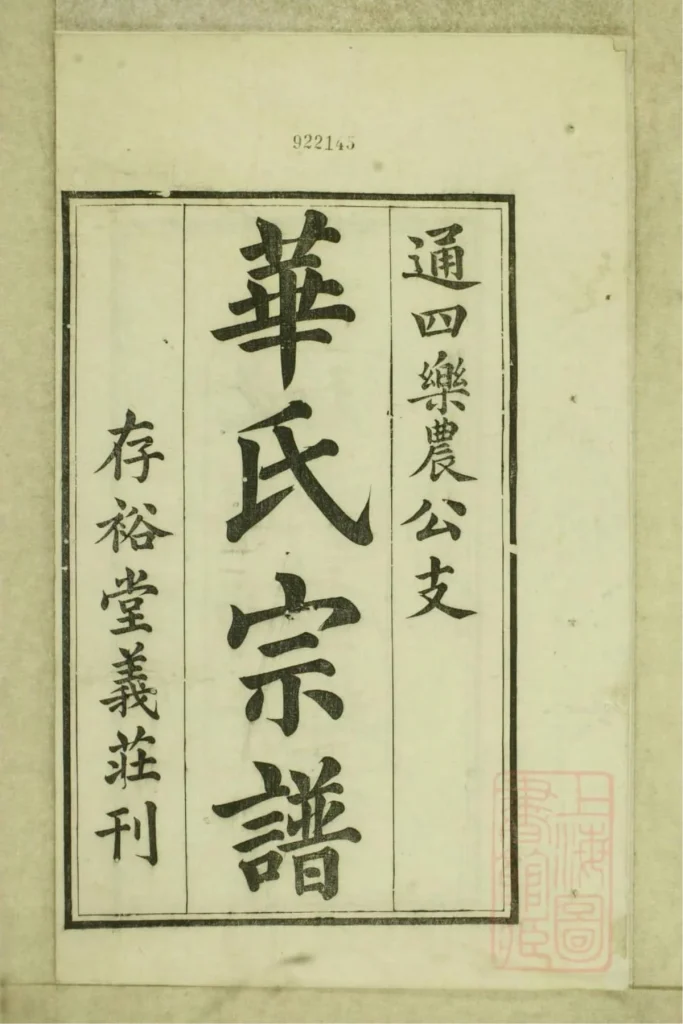 922145
通四樂農公支
華氏宗譜
存裕堂義莊刊
上海圖
書館藏